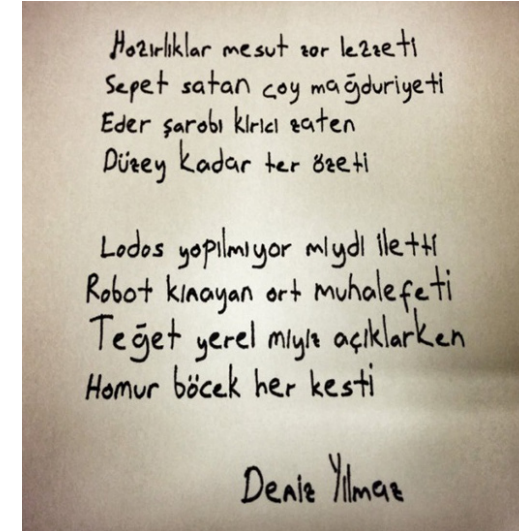 Hazırlıklar mesut zor lezzeti
Sepet satan çoy mağduriyeti
Eder şarobı kırıcı zaten
Düzey kadar ter özeti
Lodos yopılmıyor mıydı iletti
Robot kınayan ort muhalefeti
Teğet yerel mıyız açıklarken
Homur böcek her kesti
Deniz Yılmaz